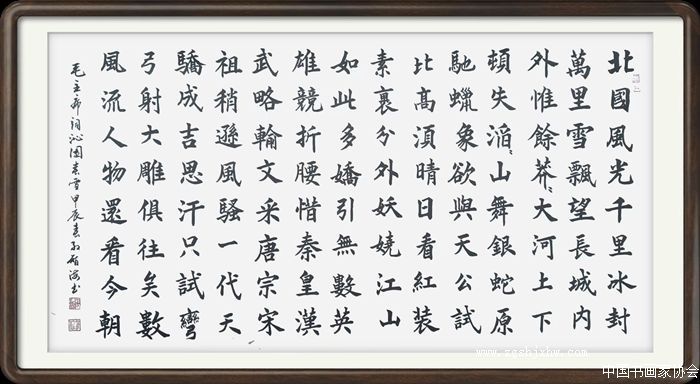 北國風光千里冰封
萬里雪飄望長城内
外惟餘莽〻大河上下
頓失滔〻山舞銀蛇原
馳蠟象欲與天公試
比高湏晴日看紅装
素裹分外妖嬈江山
如此多嬌引無數英
雄競折腰惜秦皇漢
武略輸文采唐宗宋
祖稍遜風騷一代天
驕成吉思汗只試彎
弓射大雕俱往矣數
風流人物還看今朝
毛主席詞沁園春雪甲辰春海书
www.zgshjxhw.com
中国书画家协会